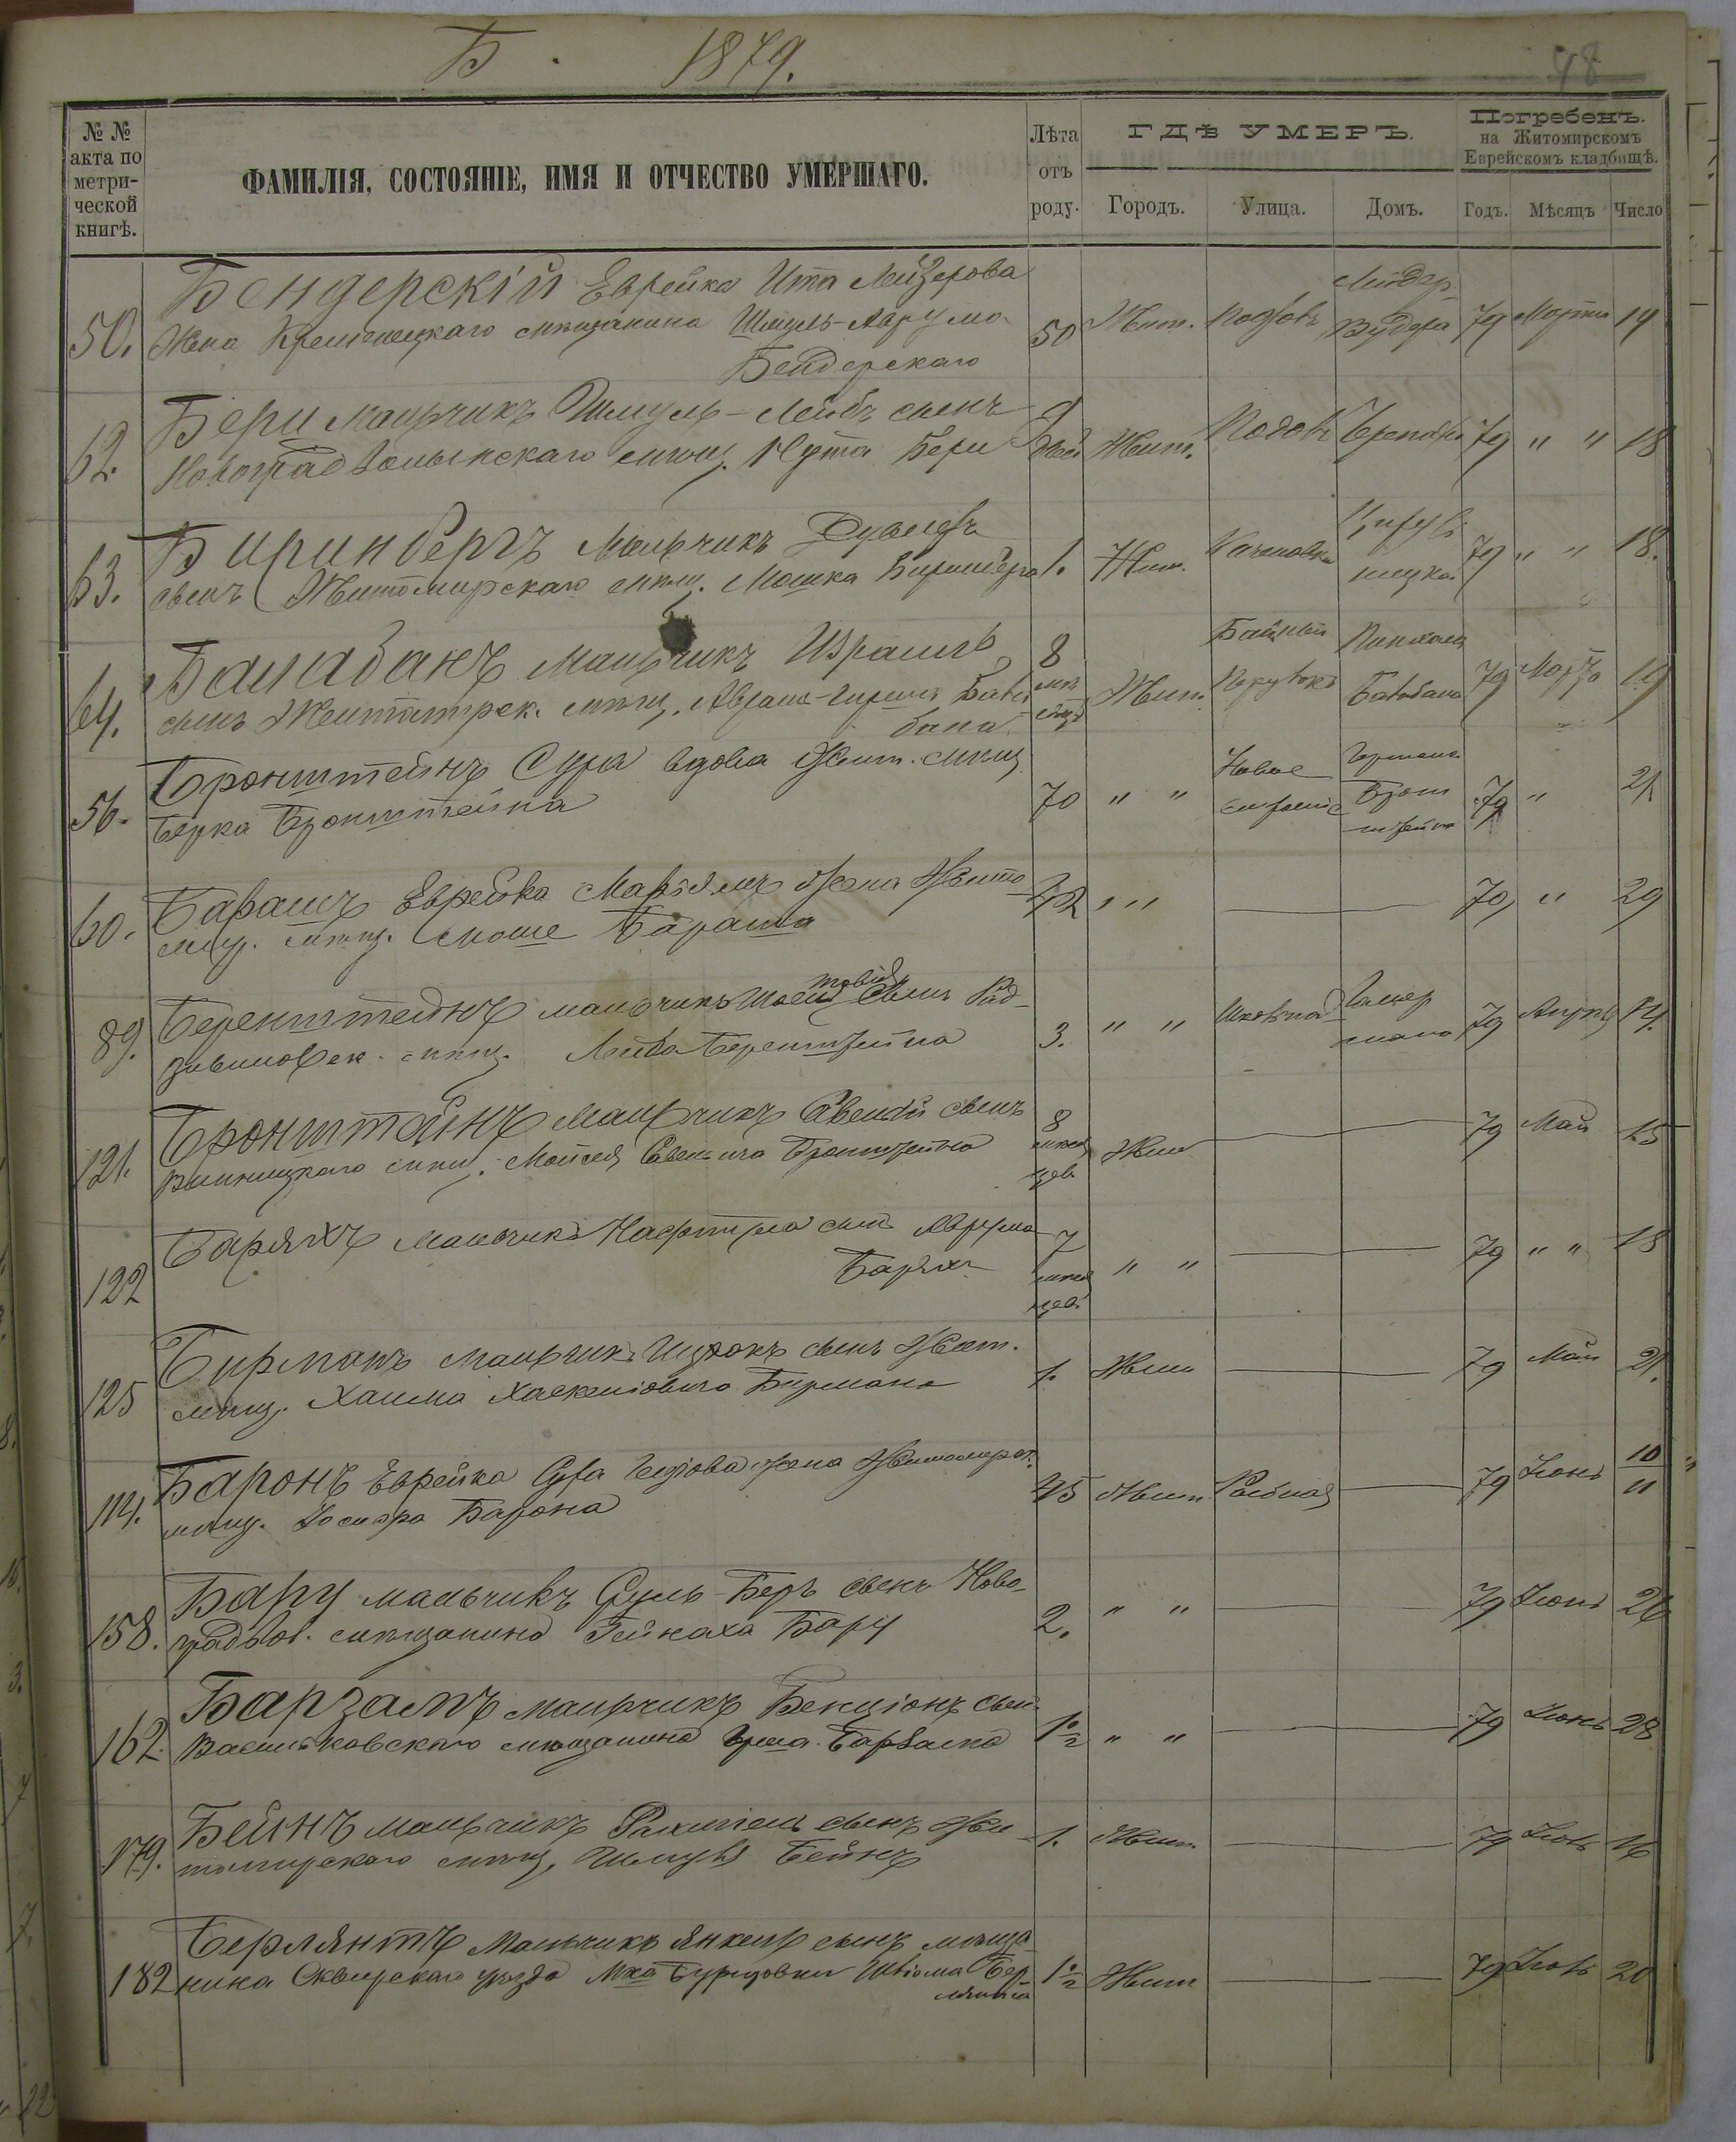 Б. 1879.
48
№ №
акта по
метри-
ческой
книгѣ.
ФАМИЛІЯ, СОСТОЯНІЕ, ИМЯ И ОТЧЕСТВО УМЕРШАГО.
Лѣта
отъ
роду.
ГДѢ УМЕРЪ.
Городъ. Улица. Домъ.
Погребенъ.
на Житомирскомъ
Еврейскомъ кладбищѣ.
Годъ. Мѣсяцъ Число
50. Бендерскій Еврейка Ита Лейзерова
Жена Кременецкаго мѣщанина Шмуль-Аврума 50 Жит. 79 Марта 14
Бендерскаго
52. Бери Мальчикъ Шмуль-Лейбъ сынъ 9
Новоградволынскаго мѣщ. Нута Бери дней Жит. 79 " " 18
53. Биринбергъ Мальчикъ
сынъ Житомирскаго мѣщ. Мошка Биринберга 1. Жит. 79 " " 18.
54. Балабанъ Мальчикъ Израиль 8
сынъ Житомирск. мѣщ. Аврам-Гирша Бала мѣ Жит. Балабана 79 Мартъ 19
бана сяц.
56. Бронштейнъ Сура вдова Жит. мѣщ.
Берка Бронштейна 70 " " Новое строеніе Бронштейна 79 " 21
60. Барашъ Еврейка Марьямъ жена Жито
мир. мѣщ. Мошe Бараша 42 " " 79 " 29
89. Беренштейнъ мальчикъ товія сынъ Рад-
зивиловск. мѣщ. Лейба Беренштейна 3. " " 79 Апрѣ 14.
121. Бронштейнъ Мальчикъ сынъ 8
Винницкаго мѣщ. Мойсея Бронштейна мѣся Жит 79 Май 15
цев
122 Барахъ Мальчикъ сынъ Аврума 7
Барахъ мѣся " " 79 " " 18
цев
125 Бирманъ Мальчикъ Ицхокъ сынъ Жит.
мѣщ. Хаима Хаскеліовича Бирмана 1. Жит 79 Май 21.
Баронъ Еврейка Сура жена Житомирск.
мѣщ. Іосифа Барона 45 Жит Рыбная 79 Іюнь 10
11
158. Бару мальчикъ Сруль-Беръ сынъ Ново-
градвол. мѣщанина Гейнаха Бару 2. " " 79 Іюнь 26
162. Барзамъ Мальчикъ Бенціонъ сын
Васильковскаго мѣщанина Барзама 1½ " " 79 Іюнь 28
179. Бейнъ мальчикъ сынъ Жи-
томирскаго мѣщ. Шмуля Бейнъ 1. Жит. 79 Іюль 16
182 Берлянтъ Мальчикъ Янкель сынъ мѣща-
нина Сквирскаго уѣзда Мка Шліома Бер- 1½ Жит 79 Іюль 20
лянта